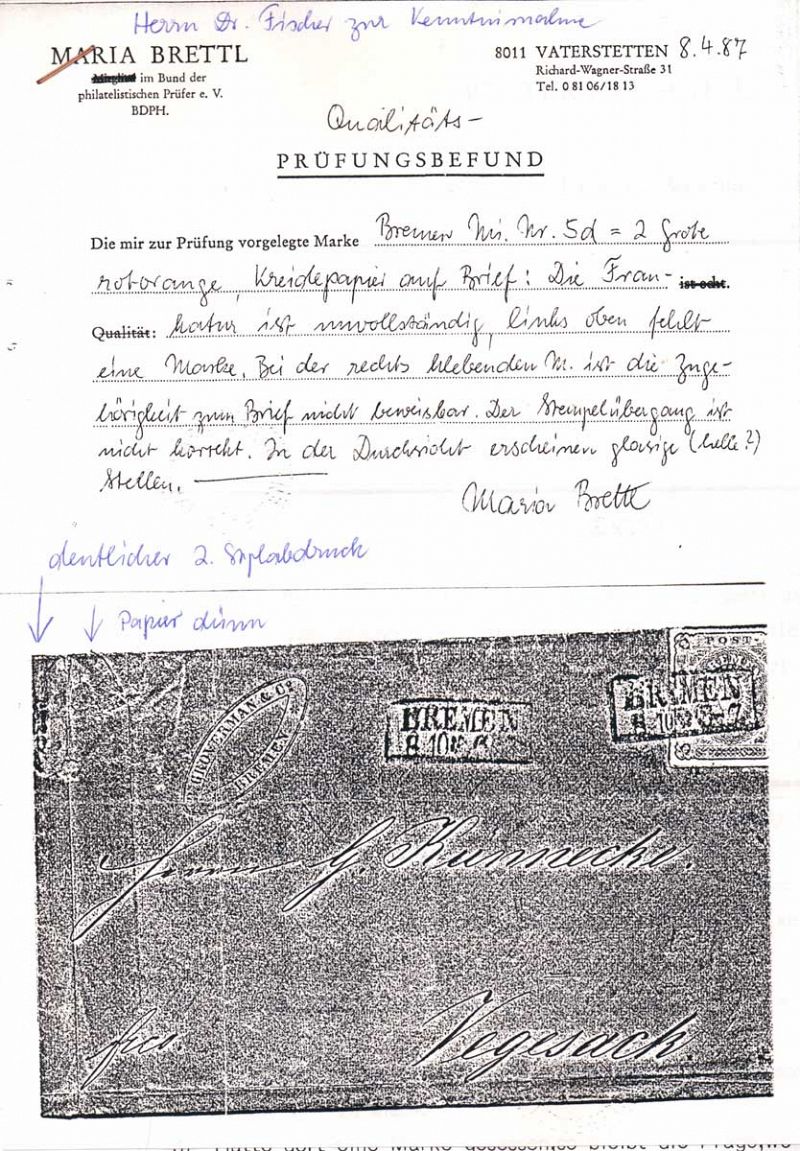 Herrn Dr. Fischer zur Kenntnisnahme
MARIA BRETTL
Mitglied im Bund der
philatelistischen Prüfer e. V.
BDPH.
8011 VATERSTETTEN 8.4.87
Richard-Wagner-Straße 31
Tel. 0 81 06/18 13
Qualitäts-
PRÜFUNGSBEFUND
Die mir zur Prüfung vorgelegte Marke Bremen Mi. Nr. 5d = 2 Grote
rotorange, Kreidepapier auf Brief: Die Fran- ist echt.
Qualität: katur ist unvollständig, links oben fehlt
eine Marke. Bei der rechts klebenden M. ist die Zuge-
hörigkeit zum Brief nicht beweisbar. Der Stempelübergang ist
nicht korrekt. In der Durchsicht erscheinen glasige (helle?)
Stellen.
Maria Brettl
deutlicher 2. Stplabdruck
Papier dünn
POST-
& Co
BREMEN
BREMEN
8 10
BREMEN
8 10
Herrn G. Künnecke.
frco.
Vegesack.